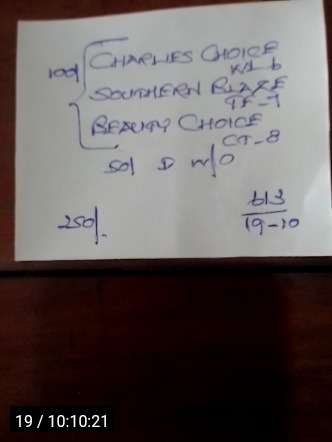 100/ CHARLIES CHOICE
K/L 6
SOUTHERN BLAZE
CHOICE
BEAUTY CHOICE
CT-8
50/ D W/O
613
250/. 19-10
19 / 10:10:21